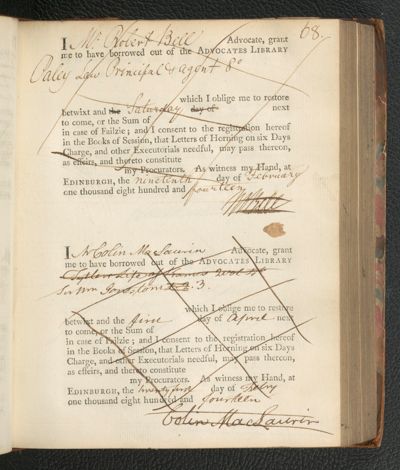 68.
I Mr Robert Bell Advocate, grant
me to have borrowed out of the ADVOCATES LIBRARY
Paley Law Principal & agent 8o
which I oblige me to restore
betwixt and the Saturday day of next
to come, or the Sum of
in case of Failzie; and I consent to the registration hereof
in the Books of Session, that Letters of Horning on six Days
Charge, and other Executorials needful, may pass thereon,
as effeirs, and thereto constitute
my Procurators. As witness my Hand, at
EDINBURGH, the nineteenth day of February
one thousand eight hundred and fourteen
I Mr Colin MacLaurin Advocate, grant
me to have borrowed out of the ADVOCATES LIBRARY
3.
which I oblige me to restore
betwixt and the first day of April next
to come, or the Sum of
in case of Failzie; and I consent to the registration hereof
in the Books of Session, that Letters of Horning on six Days
Charge, and other Executorials needful, may pass thereon,
as effeirs, and thereto constitute
my Procurators. As witness my Hand, at
EDINBURGH, the twenty first day of Febry
one thousand eight hundred and fourteen
Colin MacLaurin